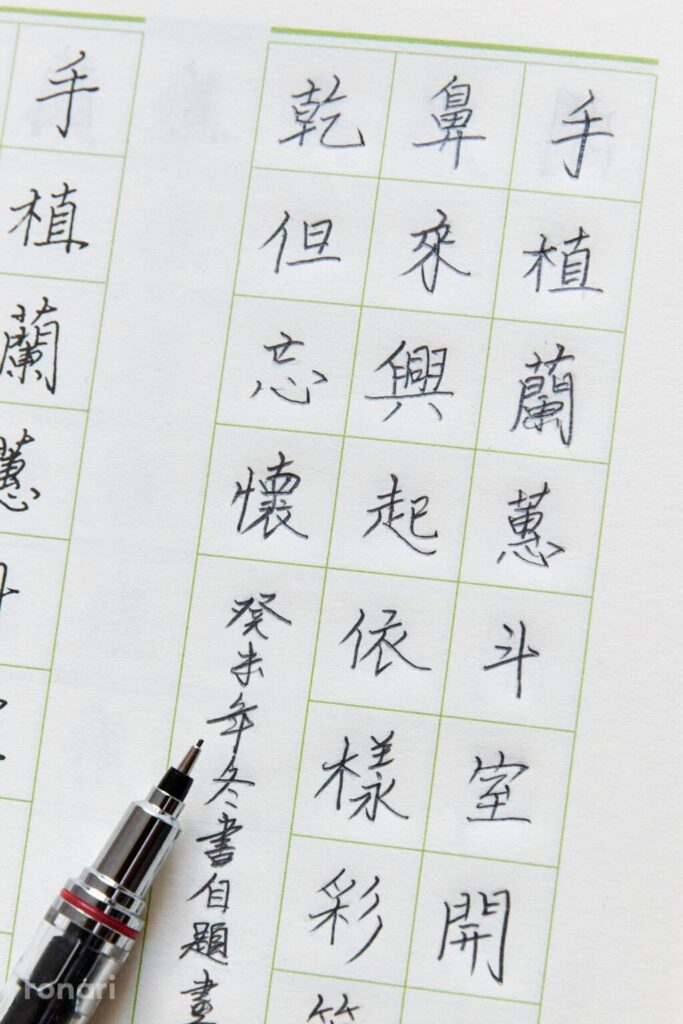 手植蘭蕙斗室開
鼻來興起依樣彩
乾但忘懷
癸未年冬書自題畫
手植蘭蕙
tonari